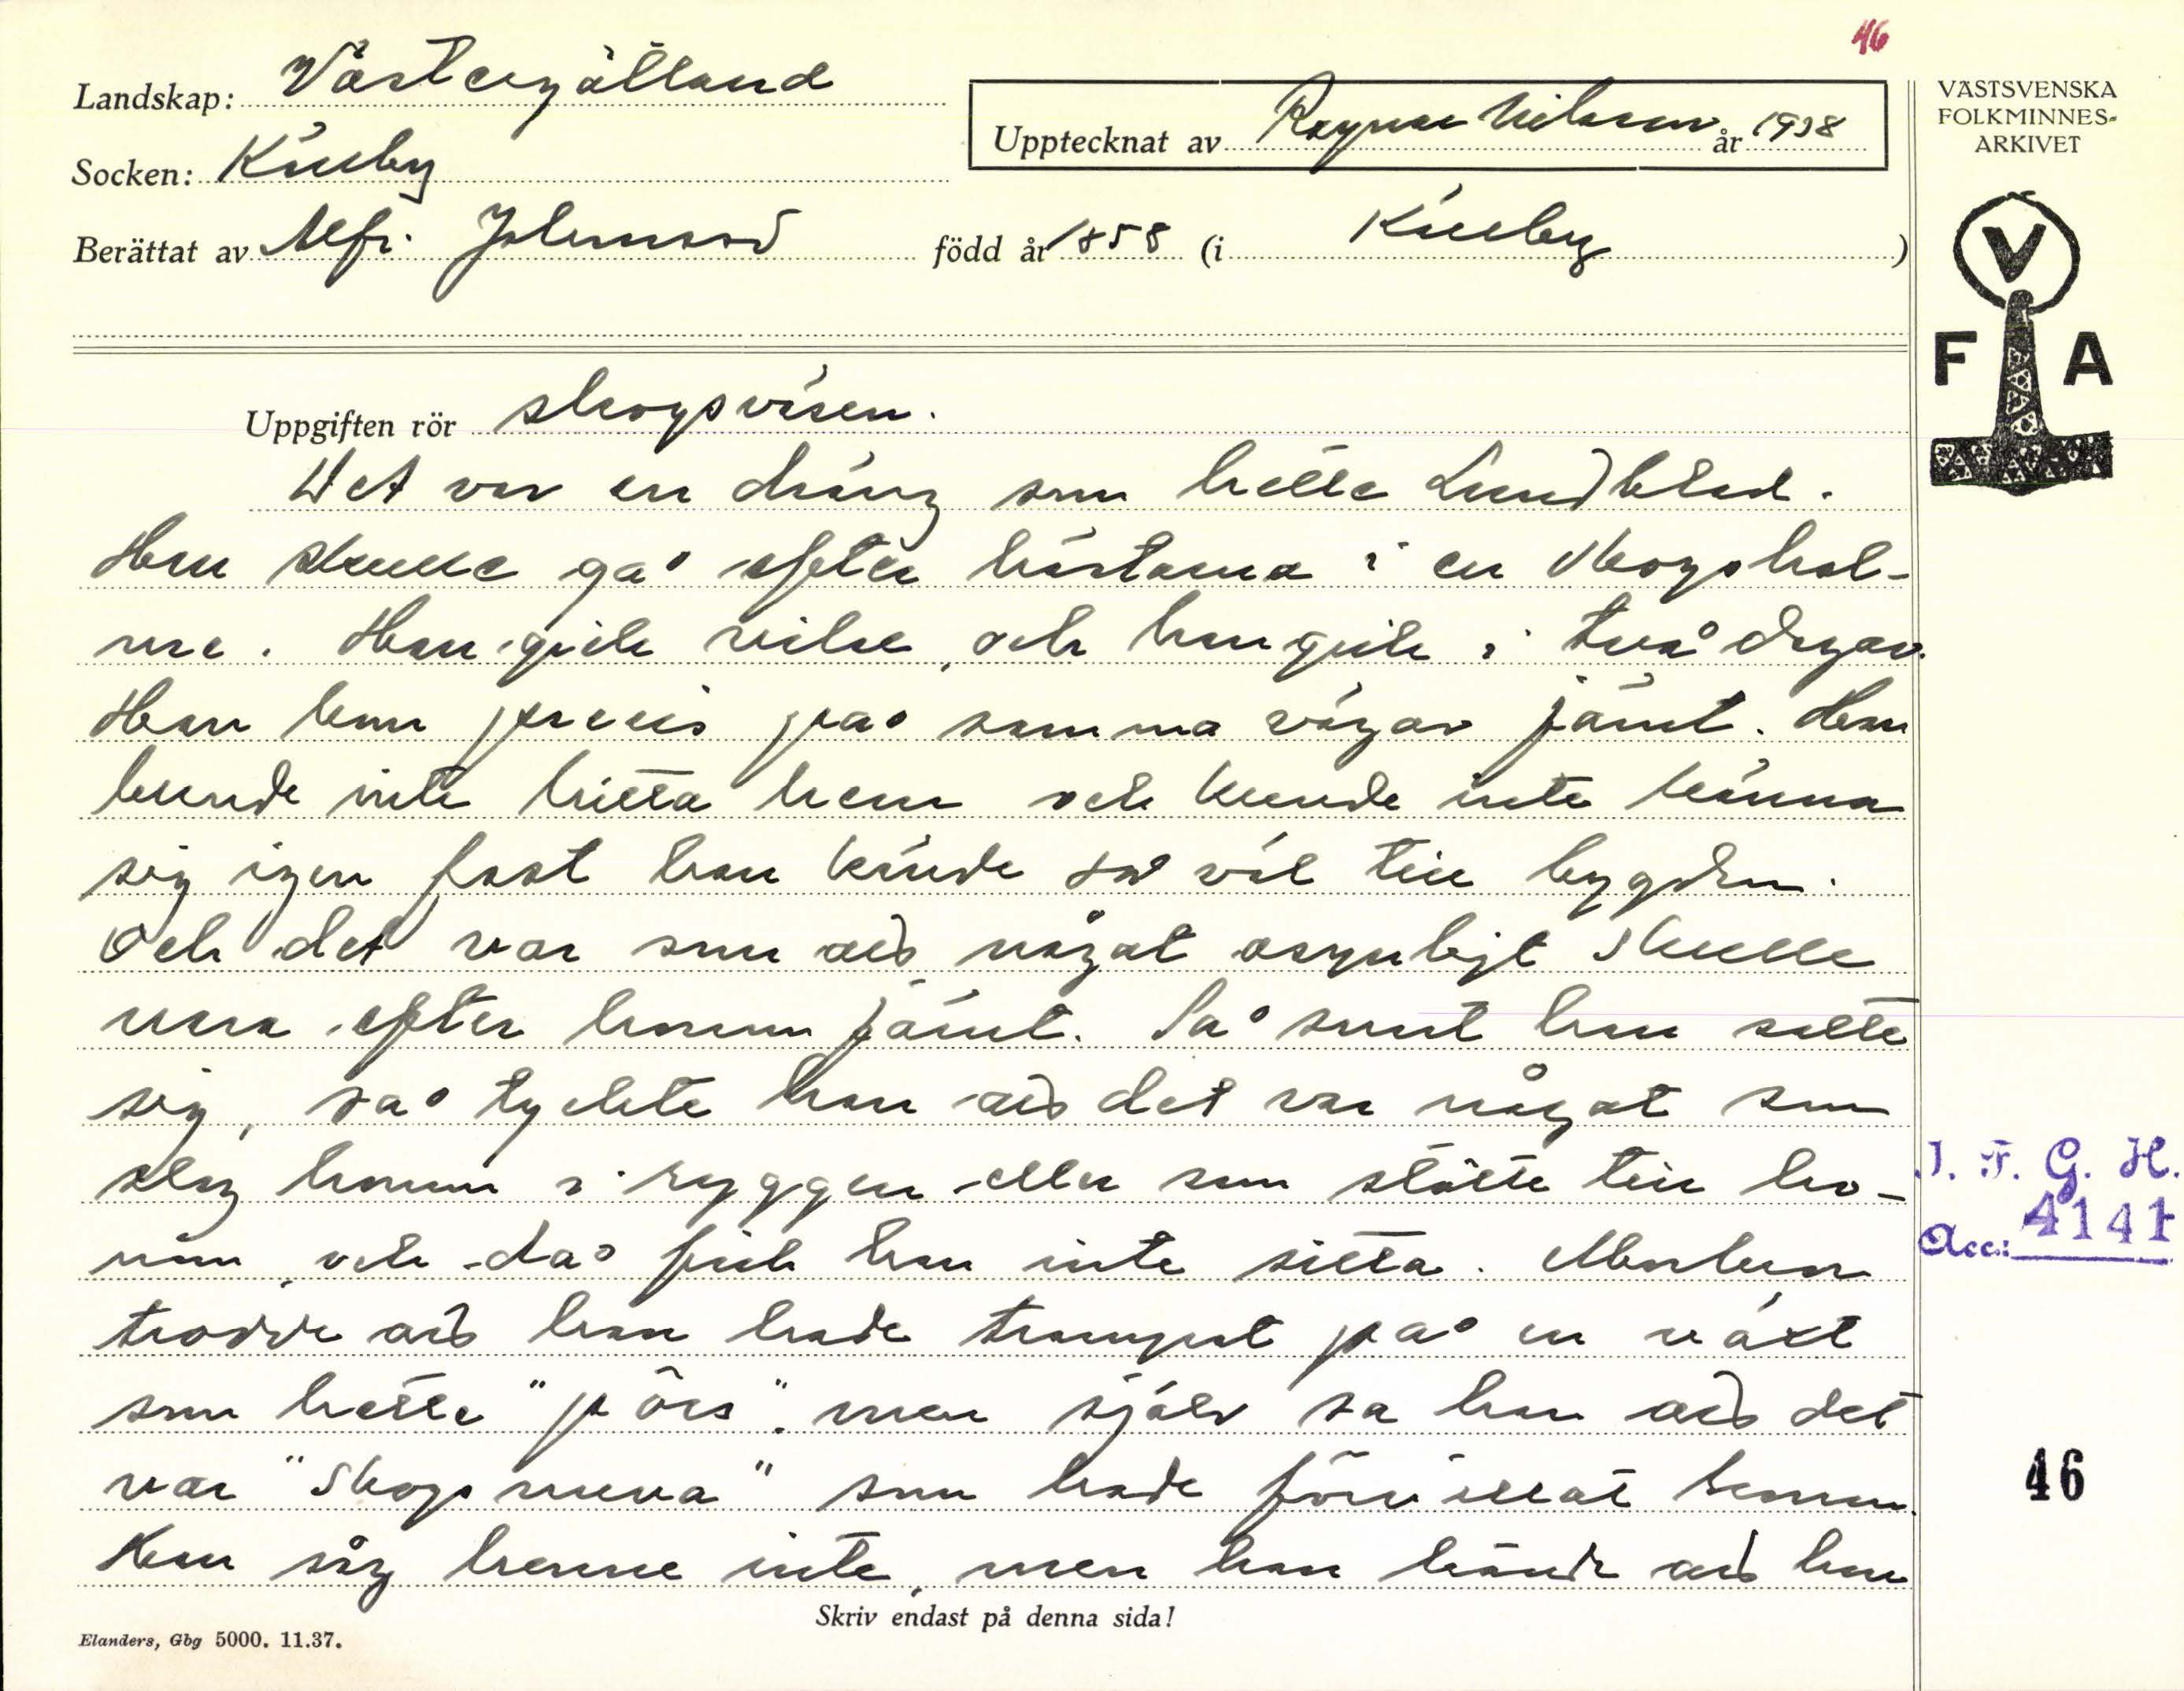 46
Landskap: Västergötland
Upptecknat av Ragnar Nilsson år 1938
VÄSTSVENSKA
FOLKMINNES-
ARKIVET
Socken: Kinby
Berättat av Alfr. Johansson född år 1858 (i Kinby)
V
F A
Uppgiften rör skogsväsen.
Det var en dräng som hette Lundblad.
Han skulle gå efter hästarna i en skogshol-
me. Han gick vilse, och han gick i två dygn.
Han kom precis på samma vägar jämt. Han
kunde inte hitta hem och kunde inte känna
sig igen fast han kände så väl till bygden.
Och det var som om något osynligt skulle
vara efter honom jämt. Så snart han satte
sig, så tyckte han att det var något som
slog honom i ryggen eller som stötte till ho-
nom, och då fick han inte sitta. Morbror
trodde att han hade trampat på en växt
som hette "pörs", men själv sa han att det
var "skogsnuva" som hade förvillat honom.
Han såg henne inte, men han kände att hon
I. F. G. H.
Acc.: 4141
46
Skriv endast på denna sida!
Elanders, Gbg 5000. 11.37.